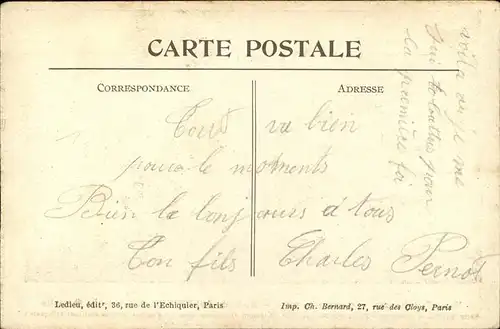 CARTE POSTALE
CORRESPONDANCE
ADRESSE
Tout va bien
pour le moments
Bien le bonjours à tous
Ton fils Charles Pernot
voila ou je me
pour
la première foi
Ledieu, édit', 36, rue de l'Echiquier, Paris
Imp. Ch. Bernard, 27, rue des Cloys, Paris